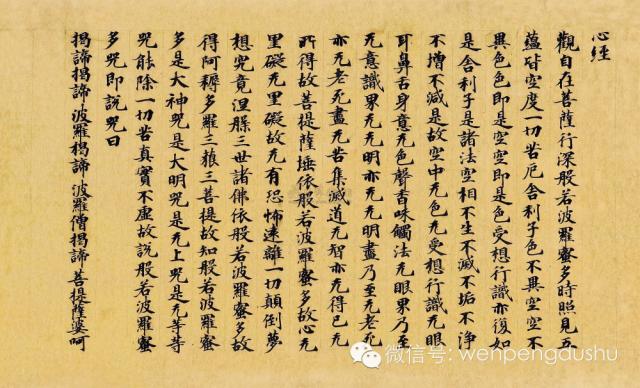 心經
觀自在菩薩行深般若波羅蜜多時照見五
蘊皆空度一切苦厄舍利子色不異空空不
異色色即是空空即是色受想行識亦復如
是舍利子是諸法空相不生不滅不垢不淨
不增不減是故空中无色无受想行識无眼
耳鼻舌身意无色聲香味觸法无眼界乃至
无意識界无无明亦无无明盡乃至无老死
亦无老死盡无苦集滅道无智亦无得已无
所得故菩提薩埵依般若波羅蜜多故心无
罣礙无罣礙故无有恐怖遠離一切顛倒夢
想究竟涅槃三世諸佛依般若波羅蜜多故
得阿耨多羅三藐三菩提故知般若波羅蜜
多是大神咒是大明咒是无上咒是无等等
咒能除一切苦真實不虛故說般若波羅蜜
多咒即說咒曰
揭諦揭諦 波羅揭諦 波羅僧揭諦 菩提薩婆呵
微信号: wenpengdushu